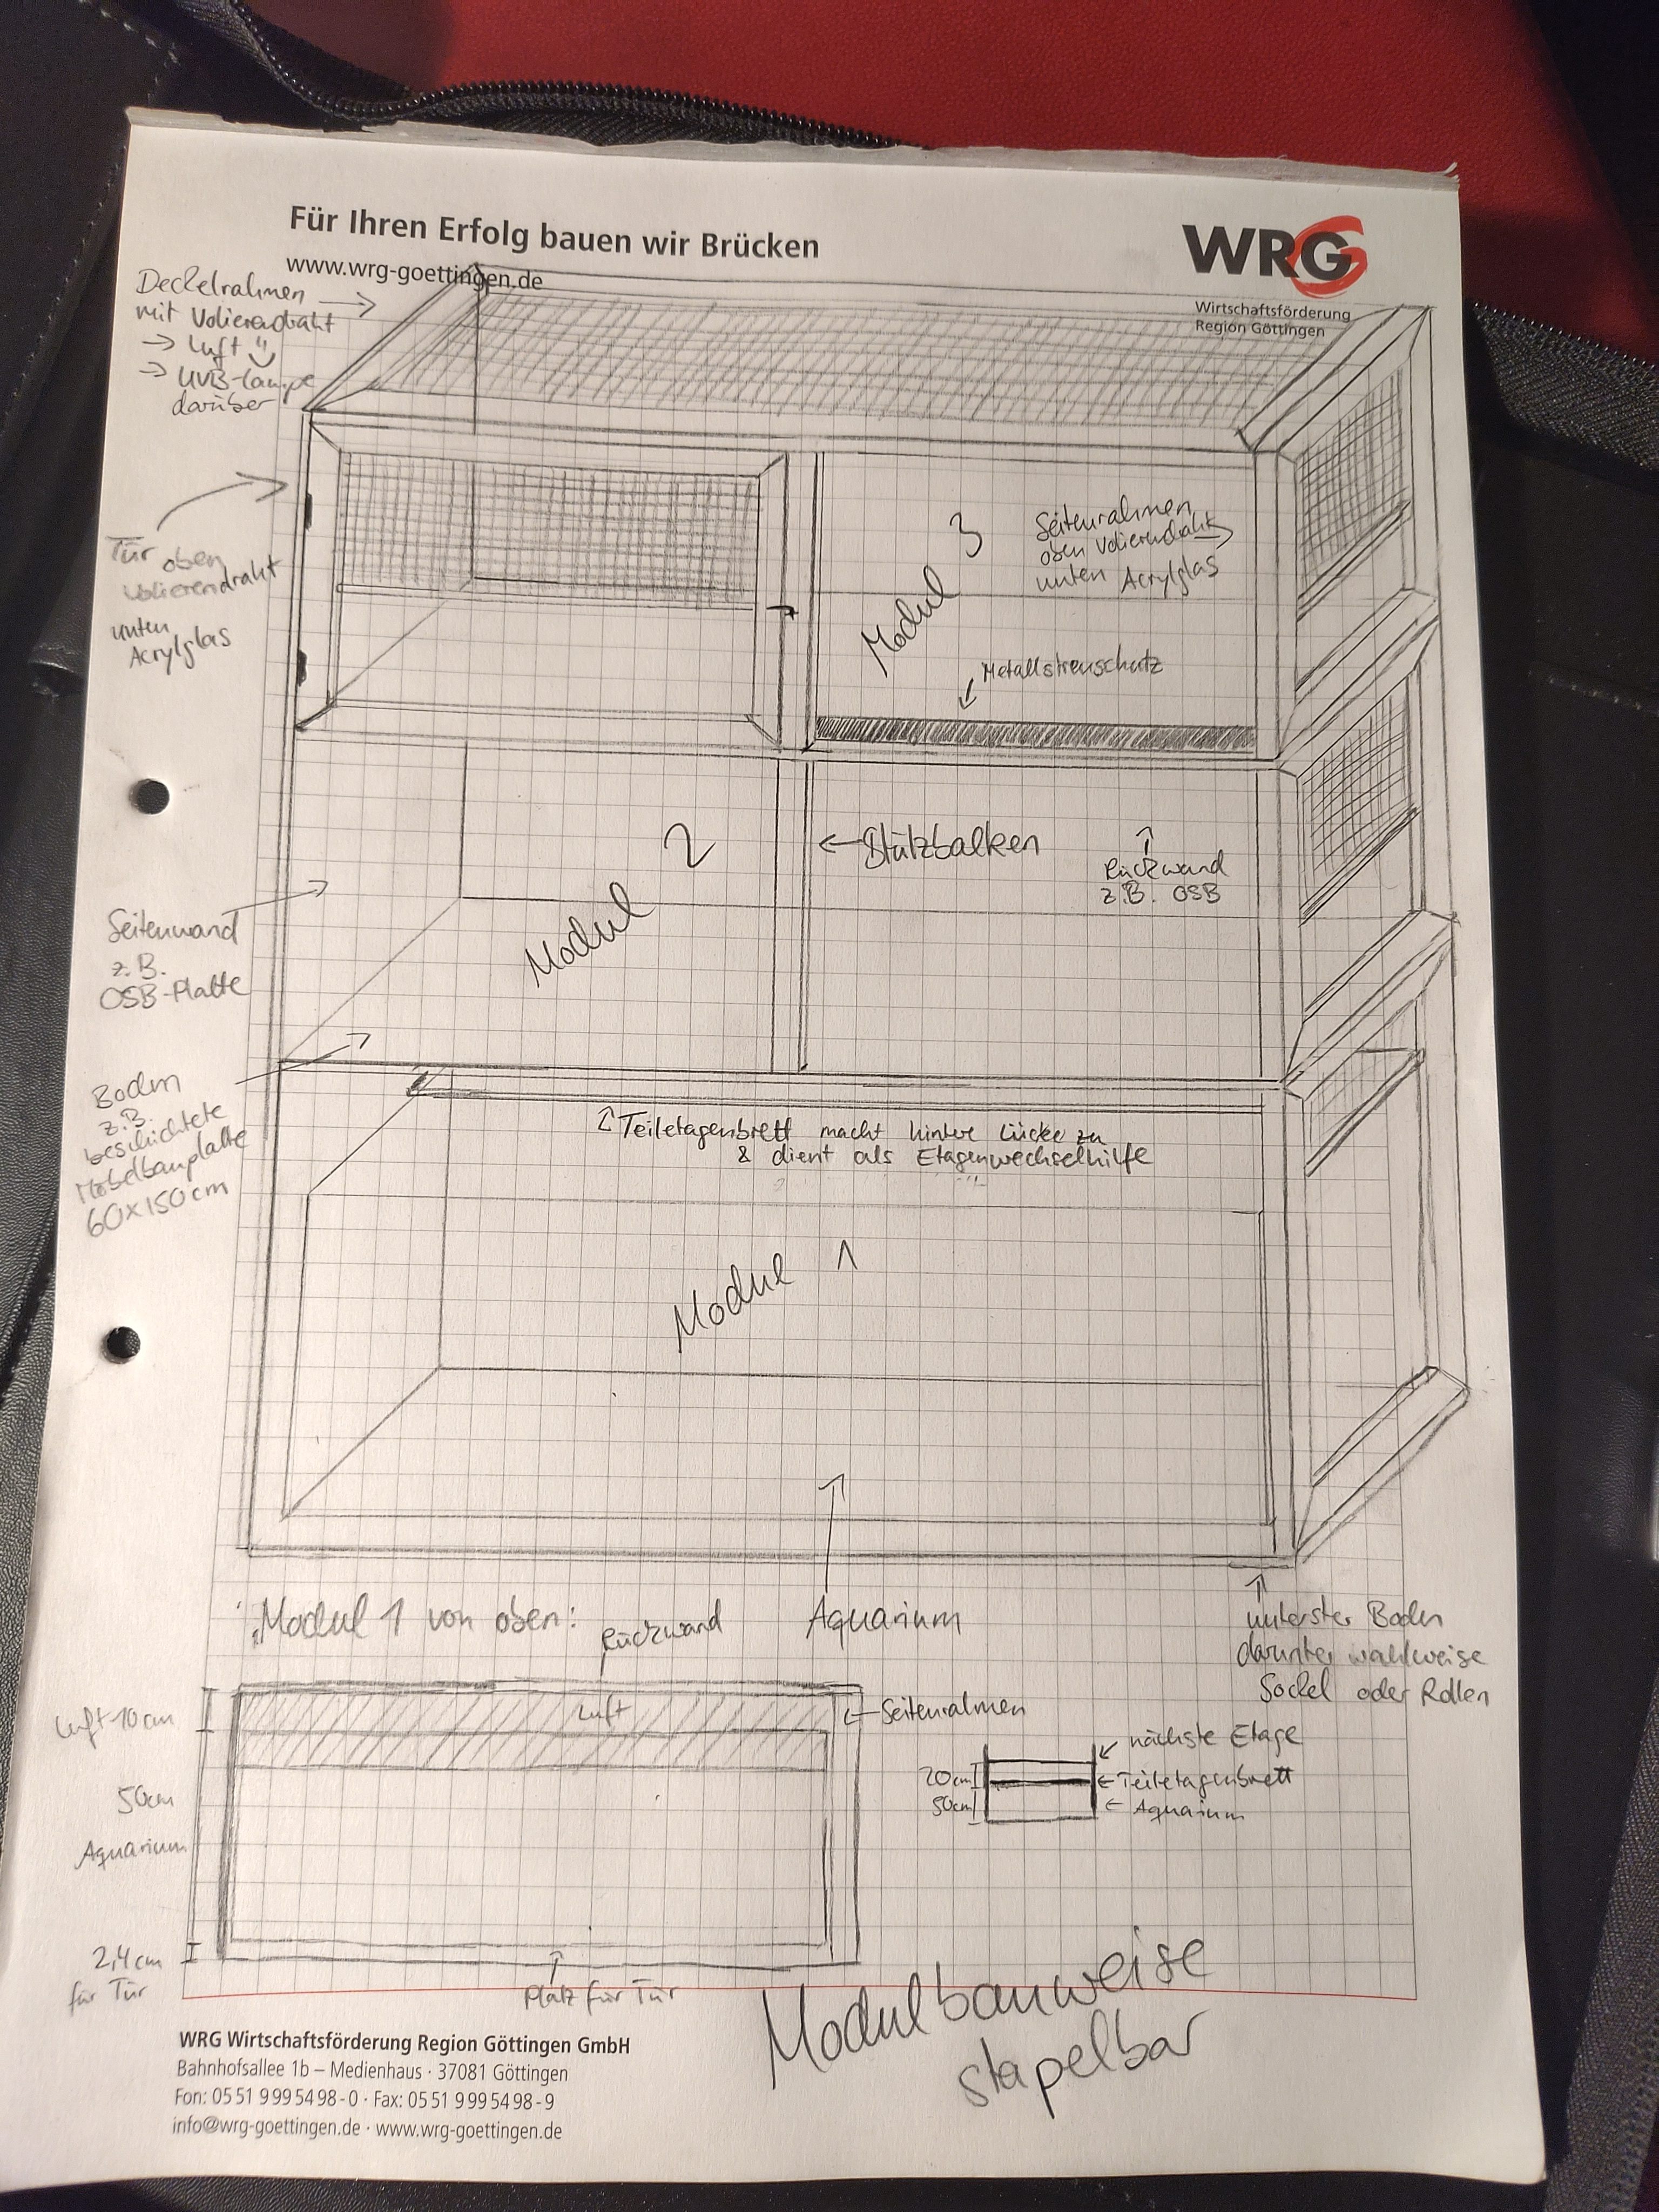 Für Ihren Erfolg bauen wir Brücken
www.wrg-goettingen.de
WRG
Wirtschaftsförderung
Region Göttingen
Deckelrahmen
mit Volierendraht
→ Luft
→ UVB-Lampe
darüber
Tür oben
Volierendraht
unten
Acrylglas
Modul 3
Seitenrahmen
oben Volierendraht
unten Acrylglas
Metallstreuschutz
Modul 2
Stützbalken
Rückwand
z.B. OSB
Seitenwand
z.B.
OSB-Platte
Boden
z.B.
beschichtete
Möbelbauplatte
60x150cm
Teiletagenbrett macht hintere Lücke zu
& dient als Etagenwechselhilfe
Modul 1
Aquarium
unterster Boden
darunter wahlweise
Sockel oder Rollen
Modul 1 von oben:
Rückwand
Luft 10cm
Luft
Seitenrahmen
50cm
Aquarium
2,4cm
für Tür
Platz für Tür
nächste Etage
20cm
Teiletagenbrett
50cm
Aquarium
Modulbauweise
stapelbar
WRG Wirtschaftsförderung Region Göttingen GmbH
Bahnhofsallee 1b – Medienhaus · 37081 Göttingen
Fon: 05 51 9 99 54 98 - 0 · Fax: 05 51 9 99 54 98 - 9
info@wrg-goettingen.de · www.wrg-goettingen.de